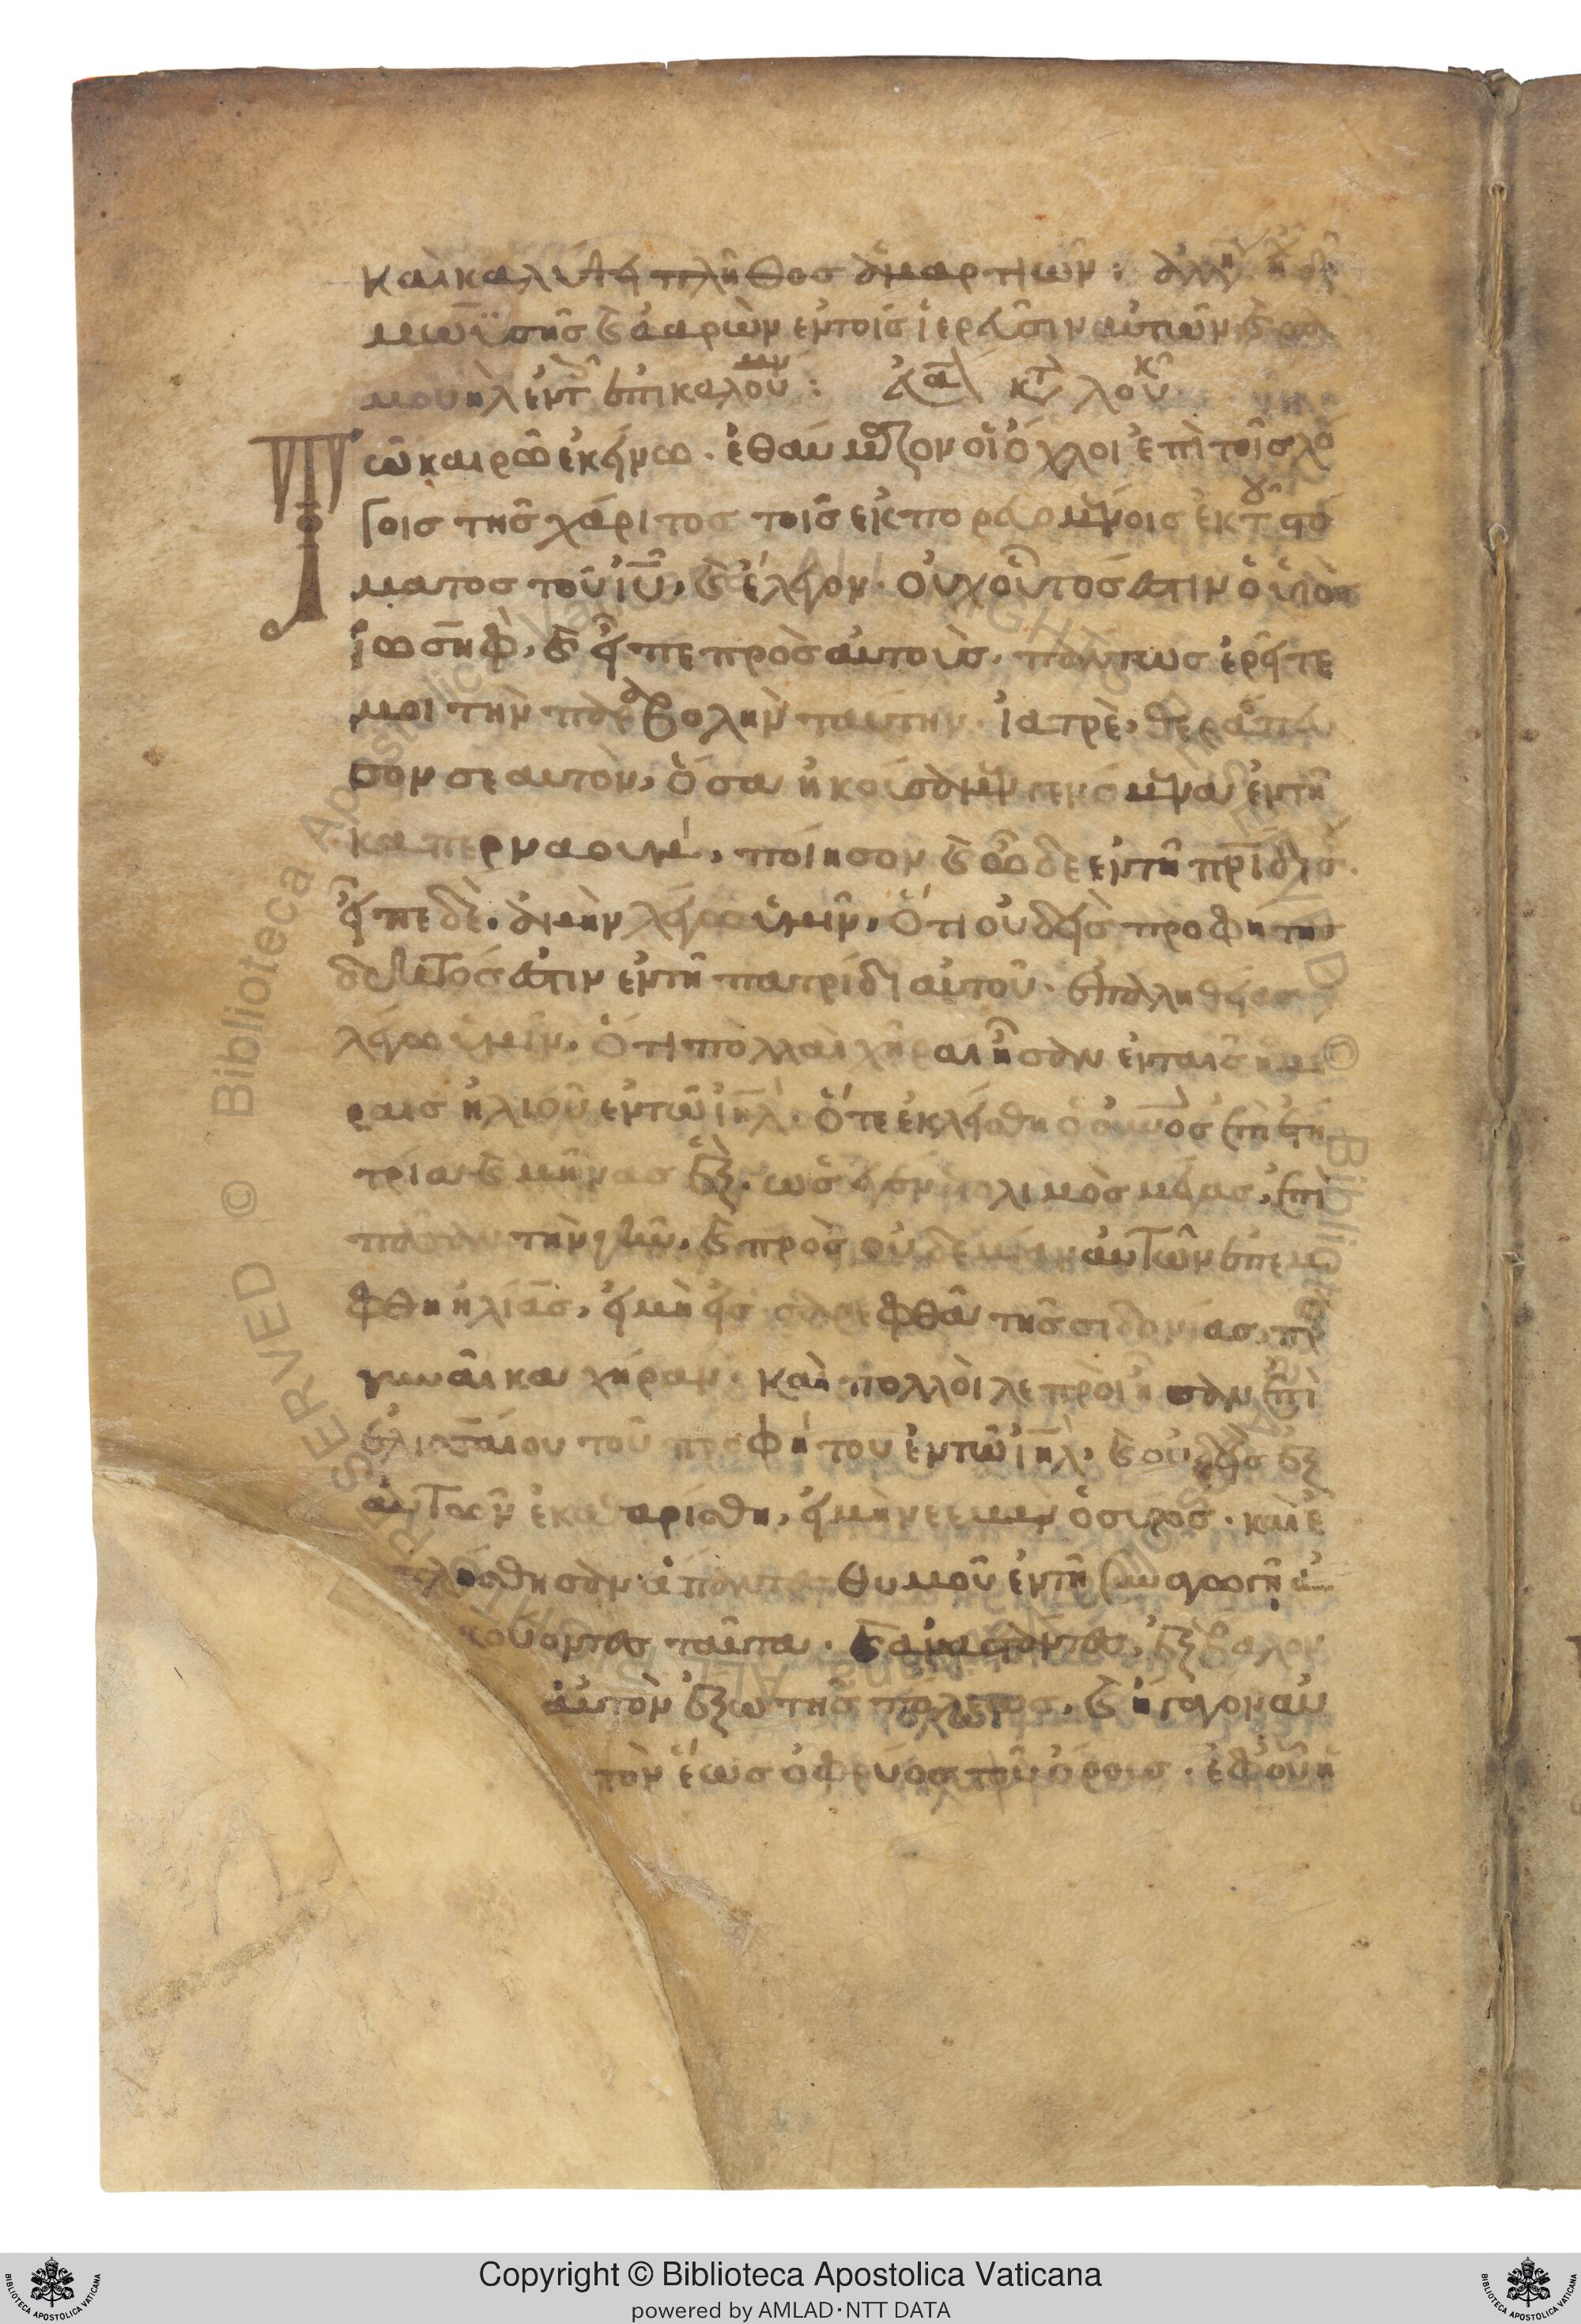 καὶ καλύψει πλῆθος ἁμαρτιῶν:
μωϋσῆς κ ἀαρὼν ἐν τοῖς ἱερεῦσιν αὐτῶν κ σα
μουὴλ ἐν τοῖς ἐπικαλου: κτ λουκ
Τῶ καιρῶ ἐκείνω. ἐθαύμαζον οἱ ὄχλοι ἐπὶ τοῖς λό
γοις τῆς χάριτος τοῖς ἐκπορευομένοις ἐκ τοῦ στό
ματος τοῦ ἰῦ, κ ἔλεγον. οὐχ οὗτός ἐστιν ὁ υἱὸς
ἰωσὴφ, κ εἶπε πρὸς αὐτοὺς, πάντως ἐρεῖτε
μοι τὴν παραβολὴν ταύτην. ἰατρὲ, θεράπευ
σον σεαυτὸν, ὅσα ἠκούσαμεν γενόμενα ἐν τῆ
καπερναούμ, ποίησον κ ὧδε ἐν τῆ πρίδι σ.
εἶπε δὲ. ἀμὴν λέγω ὑμῖν, ὅτι οὐδεὶς προφήτης
δεκτός ἐστιν ἐν τῆ πατρίδι αὐτοῦ. ἐπ ἀληθείας
λέγω ὑμῖν, ὅτι πολλαὶ χῆραι ἦσαν ἐν ταῖς ἡμέ
ραις ἠλιοῦ ἐν τῶ ἰηλ. ὅτε ἐκλείσθη ὁ οὐνος ἐπὶ ἔτη
τρία κ μῆνας ἕξ. ὡς ἐγένετο λιμὸς μέγας, ἐπὶ
πᾶσαν τὴν γῆν. κ πρὸς οὐδεμίαν αὐτῶν ἐπέμ
φθη ἠλίας, εἰ μὴ εἰς σάρεφθα τῆς σιδονίας, πρ
γυναῖκα χήραν. καὶ πολλοὶ λεπροὶ ἦσαν ἐπὶ
ἐλισσαίου τοῦ προφήτου ἐν τῶ ἰηλ, κ οὐδεὶς ἐξ
αὐτῶν ἐκαθαρίσθη, εἰ μὴ νεεμὰν ὁ σύρος. καὶ ἐ
πλήσθησαν ἅπαντες θυμοῦ ἐν τῆ συναγωγῆ ἀ
κούοντες ταῦτα. κ ἀναστάντες, ἐξέβαλον
αὐτὸν ἔξω τῆς πόλεως, κ ἤγαγον αὐ
τὸν ἕως ὀφρύος τοῦ ὄρους. ἐφ οὗ ἡ
Copyright © Biblioteca Apostolica Vaticana
powered by AMLAD·NTT DATA